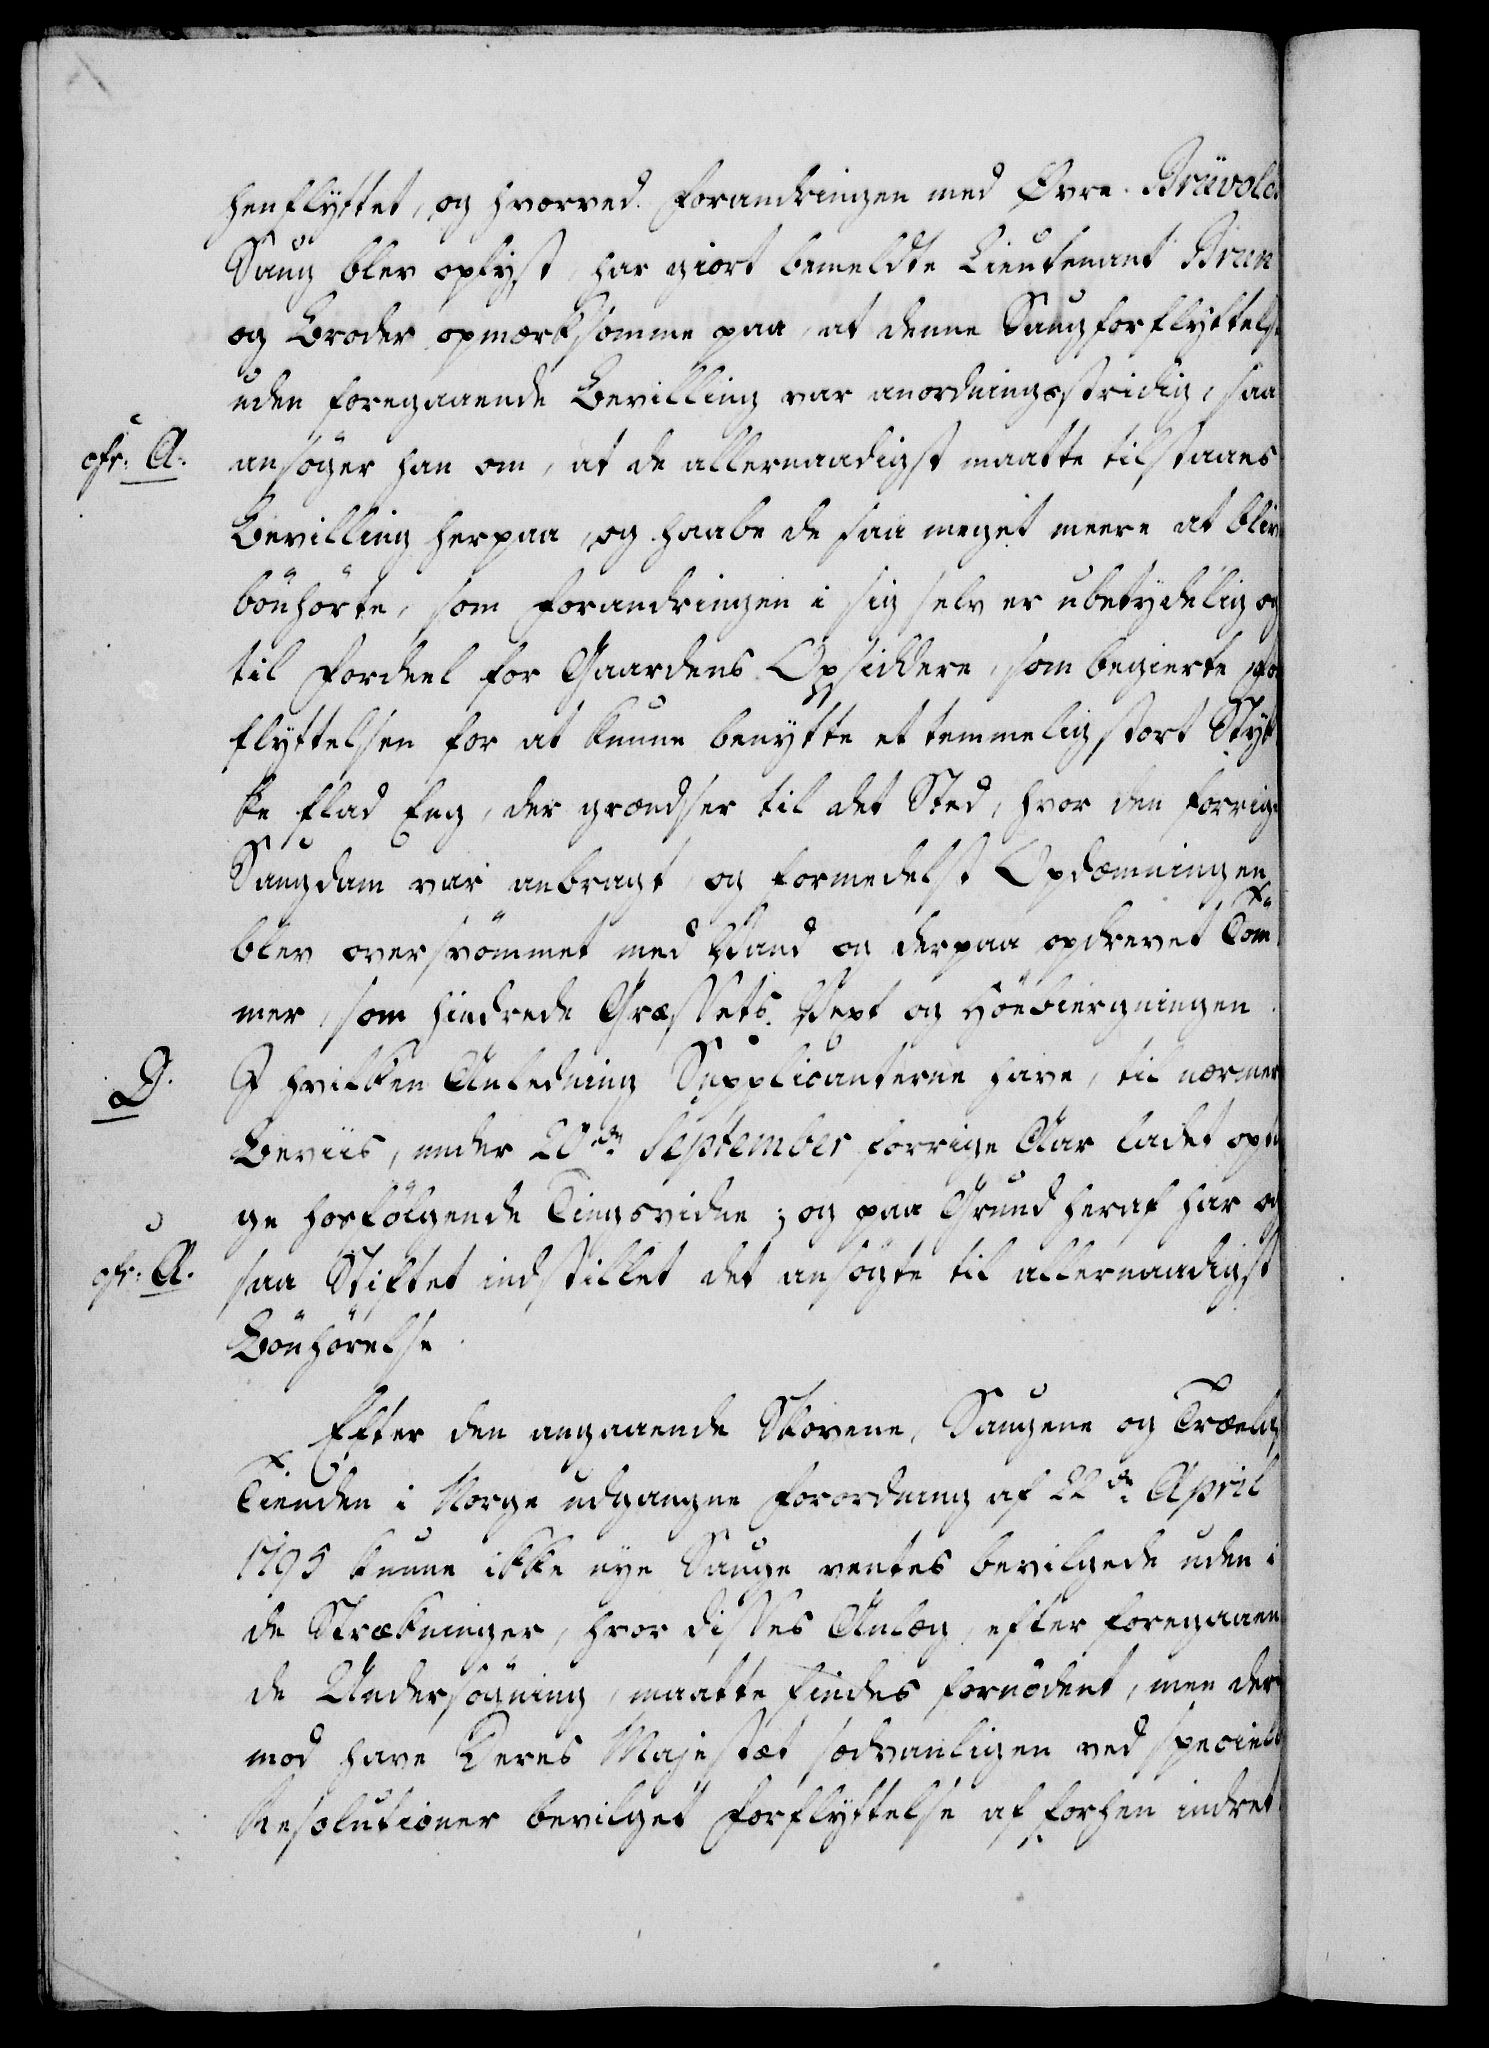 henflyttet, og hvorved Forandringen med Øvre Brüvold
Saug blev oplyst, har giort bemeldte Lieutenant Brun
og Broder opmærksomme paa, at denne Saugforflyttelse
uden foregaaende Bevilling var anordningsstridig, saa
cfr. A. ansöger han om, at de allernaadigst maatte tilstaaes
Bevilling herpaa, og haabe de saa meget meere at blive
bönhörte, som Forandringen i sig selv er ubetydelig og
til Fordeel for Gaardens Opsiddere, som begierte For
flyttelsen for at kunne benytte et temmelig stort Styk
ke flad Eng, der grændser til det Sted, hvor den forrige
Saugdam var anbragt, og formedelst Opdæmningen
blev oversvömmet med Vand og derpaa opdrevet Töm
mer, som hindrede Græssets Vext og Höebiergningen.
D. I hvilken Anledning Supplicanterne have, til nærmere
Beviis, under 20de September forrige Aar ladet opta
ge hosfölgende Tingsvidne; og paa Grund heraf har og
cfr. A. saa Stiftet indstillet det ansögte til allernaadigst
Bönhörelse.
Efter den angaaende Skovene, Saugene og Trælast
Tienden i Norge udgangne Forordning af 22de April
1795 kunne ikke nye Sauge ventes bevilgede uden i
de Strækninger, hvor disses Anlæg, efter foregaaen
de Undersögning, maatte findes fornödent, men der
mod have Deres Majestæt sædvanligen ved specielle
Resolutioner bevilget Forflyttelse af forhen indret